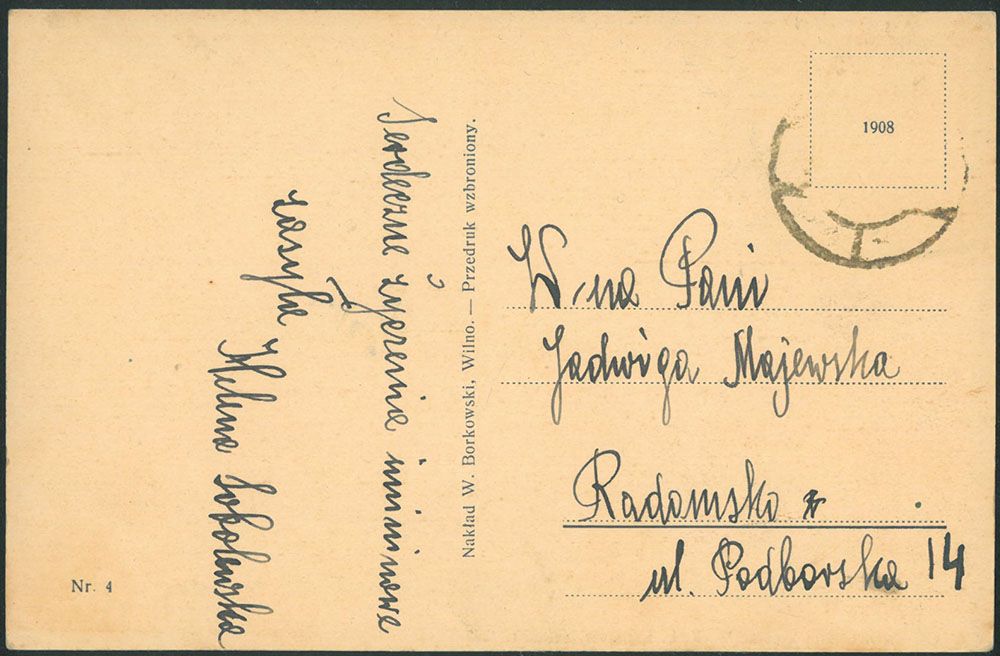 Serdeczne życzenia imininowe
zasyła
Helena Sobolewska
Nr. 4
Nakład W. Borkowski, Wilno. — Przedruk wzbroniony.
1908
W-na Pani
Jadwiga Majewska
Radomsko
ul. Podborska 14